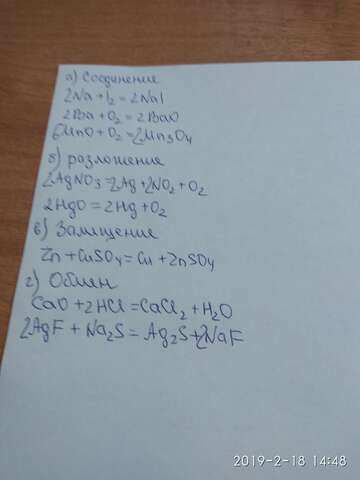 а) Соединение
2Na + I₂ = 2NaI
2Ba + O₂ = 2BaO
6MnO + O₂ = 2Mn₃O₄
б) разложение
2AgNO₃ = 2Ag + 2NO₂ + O₂
2HgO = 2Hg + O₂
в) Замещение
Zn + CuSO₄ = Cu + ZnSO₄
г) Обмен
CaO + 2HCl = CaCl₂ + H₂O
2AgF + Na₂S = Ag₂S + 2NaF
2019-2-18 14:48